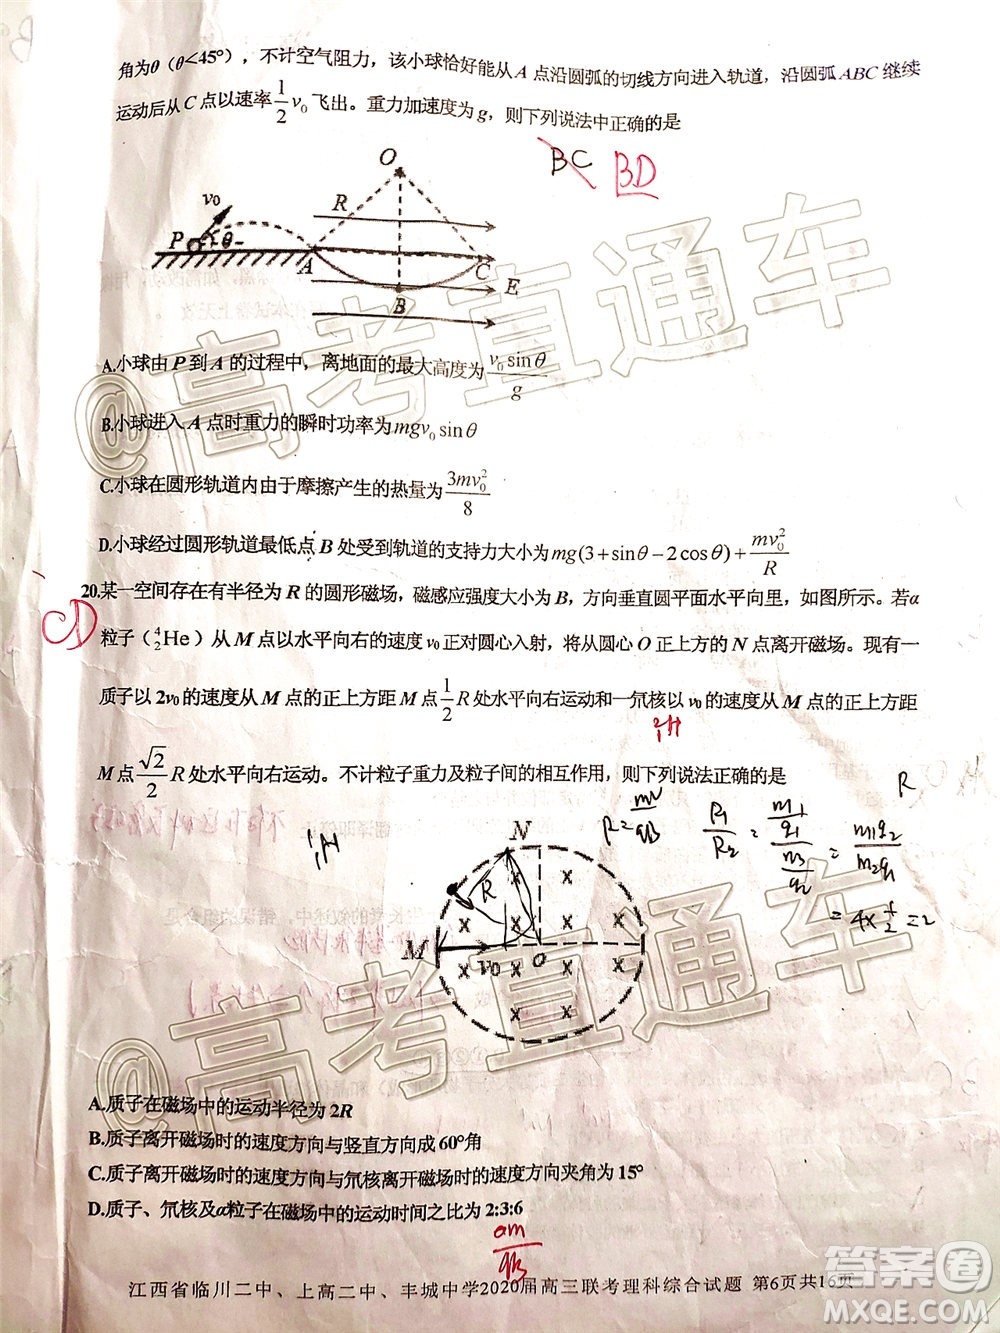 角为θ（θ<45°），不计空气阻力，该小球恰好能从 A 点沿圆弧的切线方向进入轨道，沿圆弧 ABC 继续
运动后从 C 点以速率 1/2 v₀ 飞出。重力加速度为 g，则下列说法中正确的是
BC BD
O
v₀ R
P θ
A C E
B
A.小球由 P 到 A 的过程中，离地面的最大高度为 v₀ sinθ/g
B.小球进入 A 点时重力的瞬时功率为 mgv₀ sinθ
C.小球在圆形轨道内由于摩擦产生的热量为 3mv₀²/8
D.小球经过圆形轨道最低点 B 处受到轨道的支持力大小为 mg(3+sinθ−2cosθ)+mv₀²/R
CD
20.某一空间存在有半径为 R 的圆形磁场，磁感应强度大小为 B，方向垂直圆平面水平向里，如图所示。若α
粒子（⁴₂He）从 M 点以水平向右的速度 v₀ 正对圆心入射，将从圆心 O 正上方的 N 点离开磁场。现有一
质子以 2v₀ 的速度从 M 点的正上方距 M 点 1/2 R 处水平向右运动和一氘核以 v₀ 的速度从 M 点的正上方距
²₁H
M 点 √2/2 R 处水平向右运动。不计粒子重力及粒子间的相互作用，则下列说法正确的是
R
R=mv/qB
¹₁H
N
R
M v₀ O
=4×1/2=2
A.质子在磁场中的运动半径为 2R
B.质子离开磁场时的速度方向与竖直方向成 60°角
C.质子离开磁场时的速度方向与氘核离开磁场时的速度方向夹角为 15°
D.质子、氘核及α粒子在磁场中的运动时间之比为 2:3:6
江西省临川二中、上高二中、丰城中学2020届高三联考理科综合试题 第6页共16页
@高考直通车
@高考直通车
答案圈
MXQE.COM